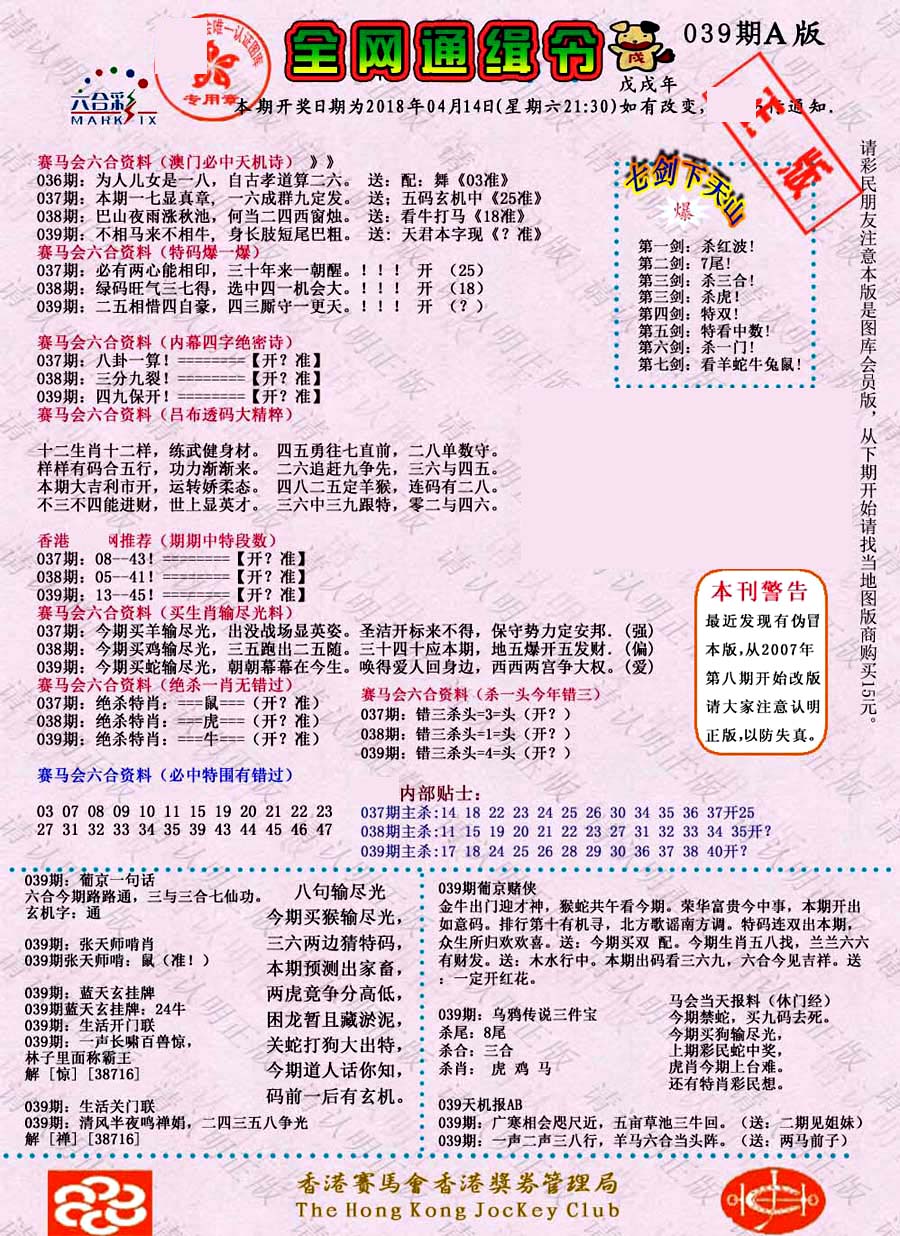 全网通缉令
039期A版
戊戌年
戌
唯一认证图库
专用章
六合彩
MARK SIX
本期开奖日期为2018年04月14日(星期六21:30)如有改变,
通知.
正版
请彩民朋友注意本版是图库会员版，从下期开始请找当地图版商购买15元。
赛马会六合资料（澳门必中天机诗）》》
036期：为人儿女是一八，自古孝道算二六。 送：配：舞《03准》
037期：本期一七显真章，一六成群九定发。 送；五码玄机中《25准》
038期：巴山夜雨涨秋池，何当二四西窗烛。 送：看牛打马《18准》
039期：不相马来不相牛，身长肢短尾巴粗。 送：天君本字现《？准》
赛马会六合资料（特码爆一爆）
037期：必有两心能相印，三十年来一朝醒。！！！ 开 （25）
038期：绿码旺气三七得，选中四一机会大。！！！ 开 （18）
039期：二五相惜四自豪，四三厮守一更天。！！！ 开 （？）
七剑下天山
爆
第一剑：杀红波！
第二剑：7尾！
第三剑：杀三合！
第三剑：杀虎！
第四剑：特双！
第五剑：特看中数！
第六剑：杀一门！
第七剑：看羊蛇牛兔鼠！
赛马会六合资料（内幕四字绝密诗）
037期：八卦一算！========【开？准】
038期：三分九裂！========【开？准】
039期：四九保开！========【开？准】
赛马会六合资料（吕布透码大精粹）
十二生肖十二样，练武健身材。 四五勇往七直前，二八单数守。
样样有码合五行，功力渐渐来。 二六追赶九争先，三六与四五。
本期大吉利市开，运转娇柔态。 四八二五定羊猴，连码有二八。
不三不四能进财，世上显英才。 三六中三九跟特，零二与四六。
香港 网推荐（期期中特段数）
037期：08--43！========【开？准】
038期：05--41！========【开？准】
039期：13--45！========【开？准】
赛马会六合资料（买生肖输尽光料）
037期：今期买羊输尽光，出没战场显英姿。圣洁开标来不得，保守势力定安邦．(强)
038期：今期买鸡输尽光，三五跑出二五随。三十四十应本期，地五爆开五发财．(偏)
039期：今期买蛇输尽光，朝朝幕幕在今生。唤得爱人回身边，西西两宫争大权。(爱)
赛马会六合资料（绝杀一肖无错过）
037期：绝杀特肖：===鼠===（开？准）
038期：绝杀特肖：===虎===（开？准）
039期：绝杀特肖：===牛===（开？准）
赛马会六合资料（杀一头今年错三）
037期：错三杀头=3=头（开？）
038期：错三杀头=1=头（开？）
039期：错三杀头=4=头（开？）
本刊警告
最近发现有伪冒
本版,从2007年
第八期开始改版
请大家注意认明
正版,以防失真。
赛马会六合资料（必中特围有错过）
03 07 08 09 10 11 15 19 20 21 22 23
27 31 32 33 34 35 39 43 44 45 46 47
内部贴士：
037期主杀:14 18 22 23 24 25 26 30 34 35 36 37开25
038期主杀:11 15 19 20 21 22 23 27 31 32 33 34 35开？
039期主杀:17 18 24 25 26 28 29 30 36 37 38 40开？
039期：葡京一句话
六合今期路路通，三与三合七仙功。
玄机字：通
039期：张天师啃肖
039期张天师啃：鼠（准！）
039期：蓝天玄挂牌
039期蓝天玄挂牌：24牛
039期：生活开门联
039期：一声长啸百兽惊，
林子里面称霸王
解［惊］[38716]
039期：生活关门联
039期：清风半夜鸣禅娟，二四三五八争光
解［禅］[38716]
八句输尽光
今期买猴输尽光，
三六两边猜特码，
本期预测出家畜，
两虎竟争分高低，
困龙暂且藏淤泥，
关蛇打狗大出特，
今期道人话你知，
码前一后有玄机。
039期葡京赌侠
金牛出门迎才神，猴蛇共午看今期。荣华富贵今中事，本期开出
如意码。排行第十有机寻，北方歌谣南方调。特码连双出本期，
众生所归欢欢喜。送：今期买双 配。今期生肖五八找，兰兰六六
有财发。送：木水行中。本期出码看三六九，六合今见吉祥。送
：一定开红花。
039期：乌鸦传说三件宝
杀尾：8尾
杀合：三合
杀肖： 虎 鸡 马
马会当天报料（休门经）
今期禁蛇，买九码去死。
今期买狗输尽光，
上期彩民蛇中奖，
虎肖今期上台难。
还有特肖彩民想。
039天机报AB
039期：广寒相会咫尺近，五亩草池三牛回。（送：二期见姐妹）
039期：一声二声三八行，羊马六合当头阵。（送：两马前子）
香港賽馬會香港獎券管理局
The Hong Kong JocKey Club